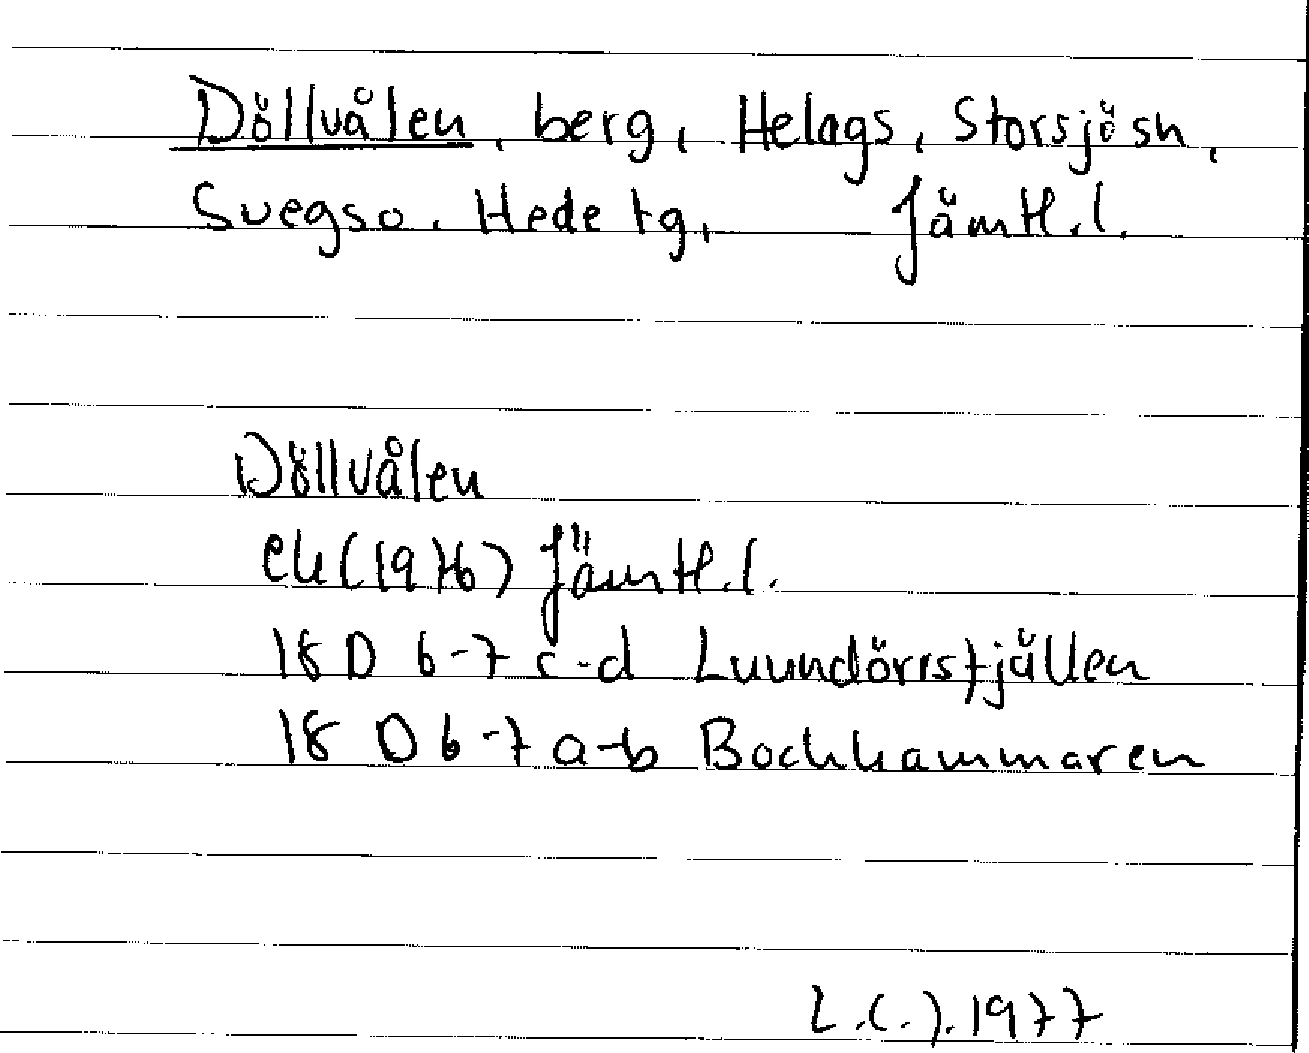 Döllvålen, berg, Helags, Storsjösn,
Svegso. Hede tg, Jämtl.l.
Döllvålen
ek (1976) Jämtl.l.
18 D 6-7 c-d Lunndörrsfjällen
18 D 6-7 a-b Bockhammaren
L.C.J. 1977